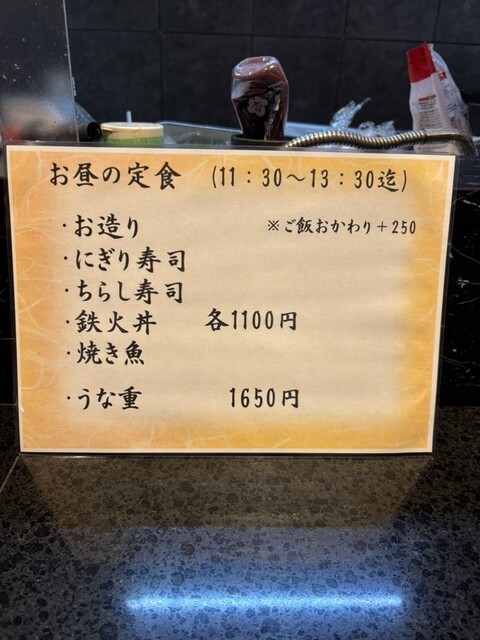 お昼の定食 (11：30～13：30迄)
・お造り ※ご飯おかわり＋250
・にぎり寿司
・ちらし寿司
・鉄火丼 各1100円
・焼き魚
・うな重 1650円